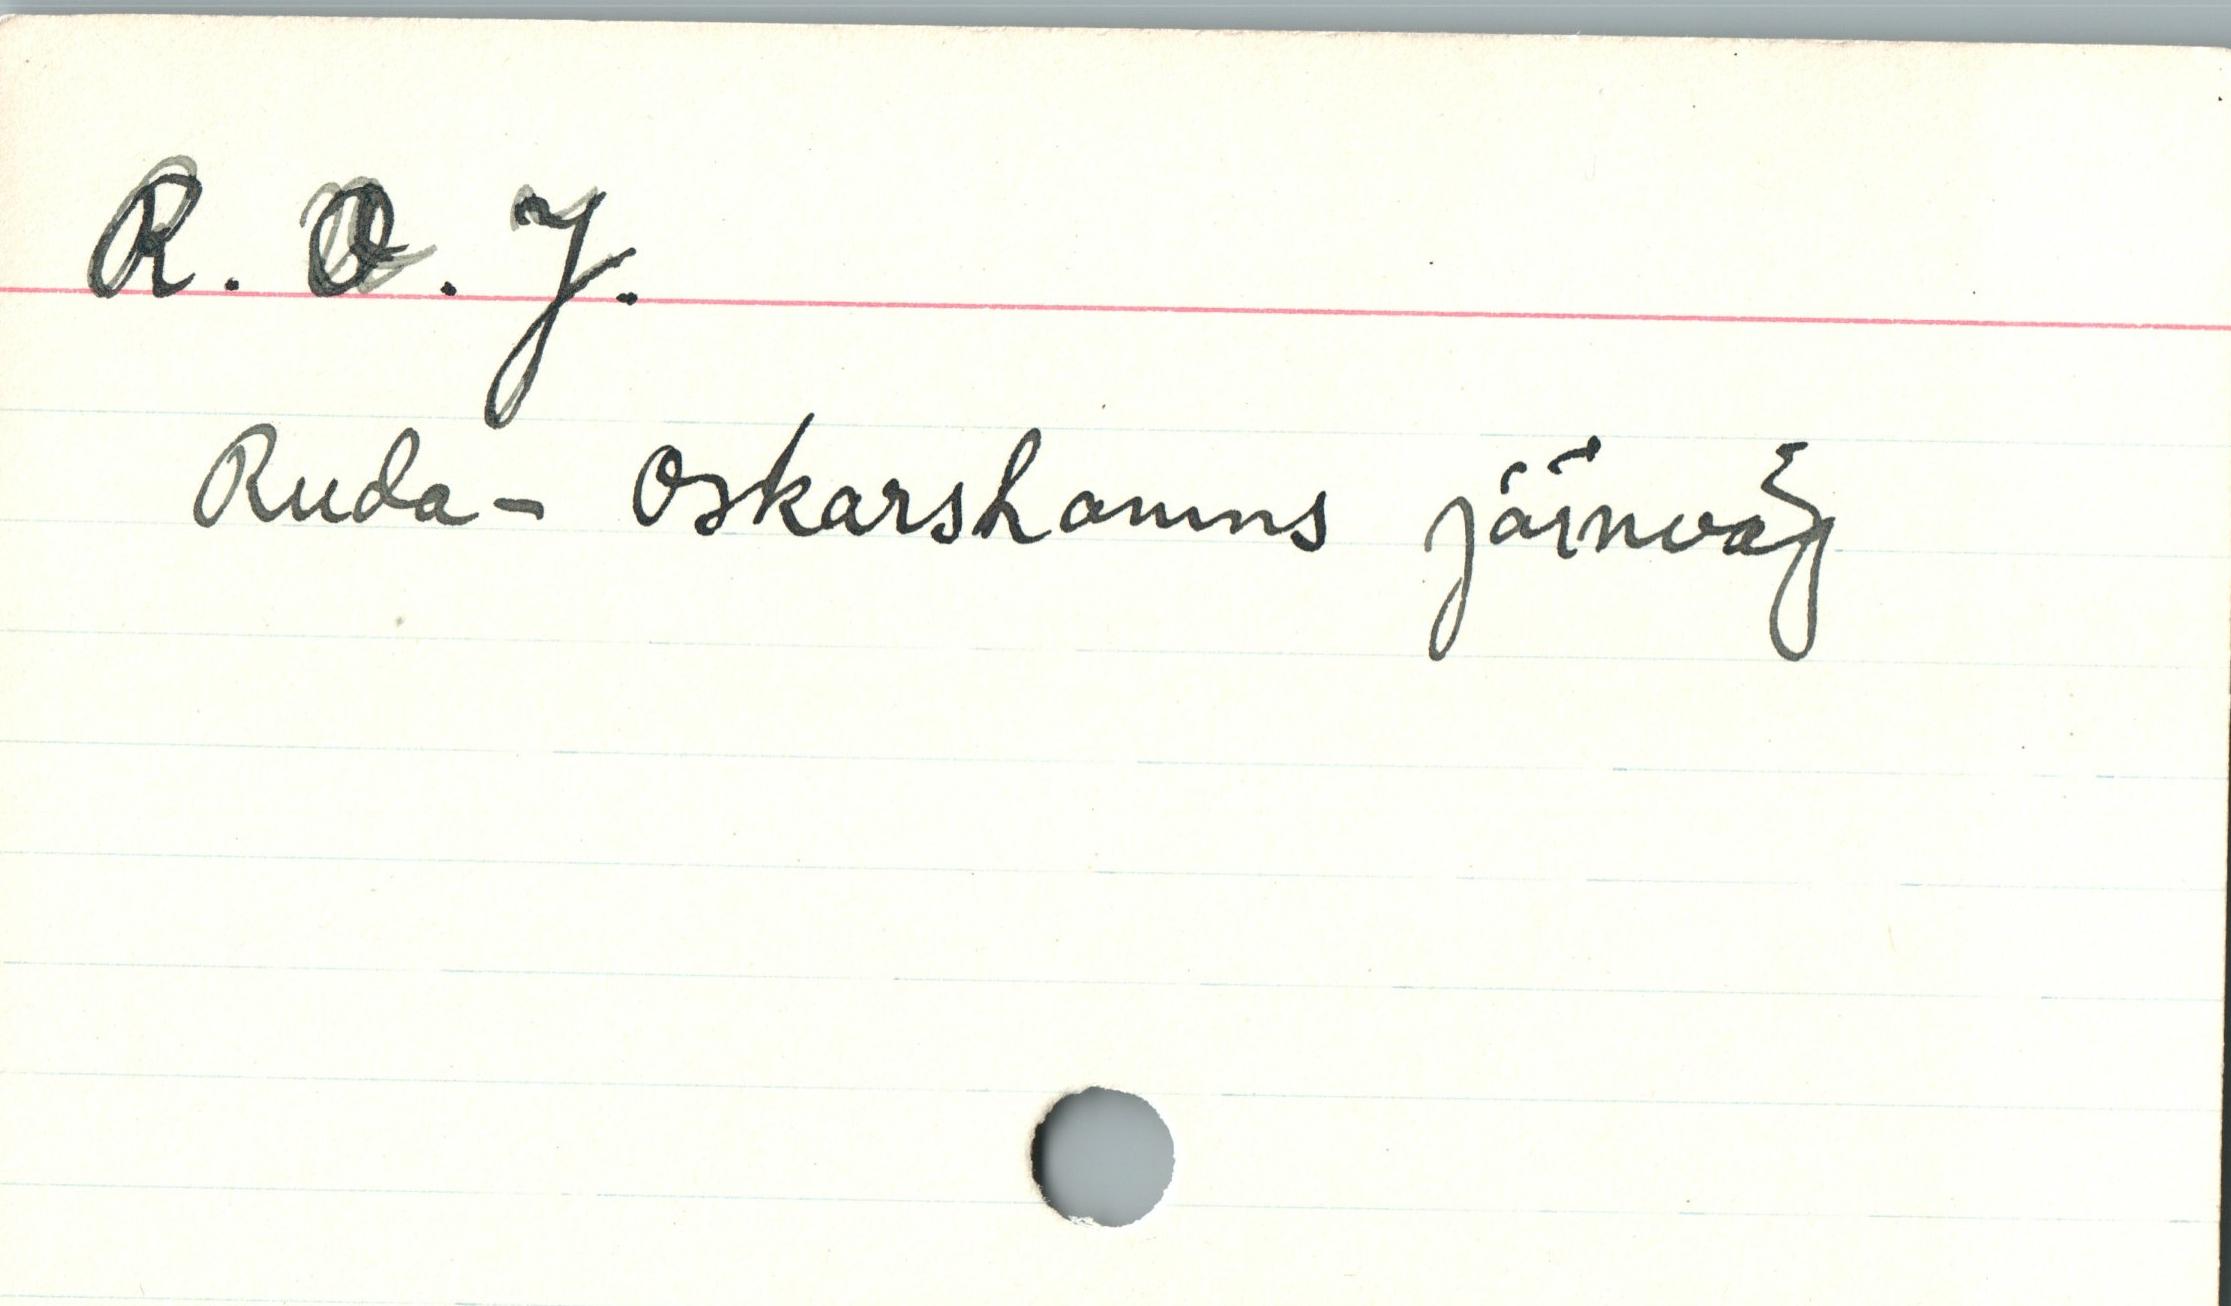 R. O. J.
Ruda - Oskarshamns järnväg